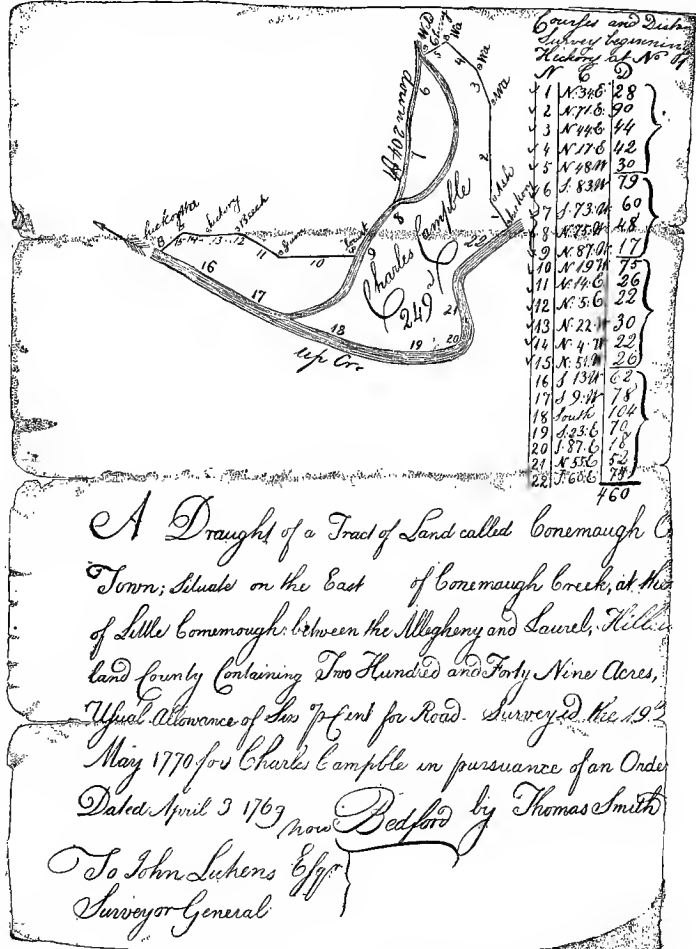 Courses and Distan
Survey beginning
Hickory at No of
N C D
1 N.34.E 28
2 N.71.E 90
3 N.44.E 44
4 N.17.E 42
5 N.48.W 30
6 S.83.W 79
7 S.73.W 60
8 N.75.W 48
9 N.87.W 17
10 N.19.W 75
11 N.14.E 26
12 N.5.E 22
13 N.22.W 30
14 N.4.W 22
15 N.51.W 26
16 S.13.W 62
17 S.9.W 78
18 South 104
19 S.23.E 70
20 S.87.E 18
21 N.55.E 52
22 S.60.E 78
460
W.O
Cherry
5
Wa
4
Wa
3
Wa
2
Ash
Hickory
down
9
1
8
9
Charles Campble
249
22
21
20
19
18
17
16
10
11
12
13
14
15
Beech
up Cre
A Draught of a Tract of Land called Conemaugh O
Town; Situate on the East of Conemaugh Creek, at the
of Little Conemough: between the Allegheny and Laurel, Hills
land County Containing Two Hundred and Forty Nine Acres,
Usual Allowance of Six P Cent for Road. Surveyed the 19th
May 1770 for Charles Campble in pursuance of an Orde
Dated April 3 1769 now Bedford by Thomas Smith
To John Lukens Esqr
Surveyor General